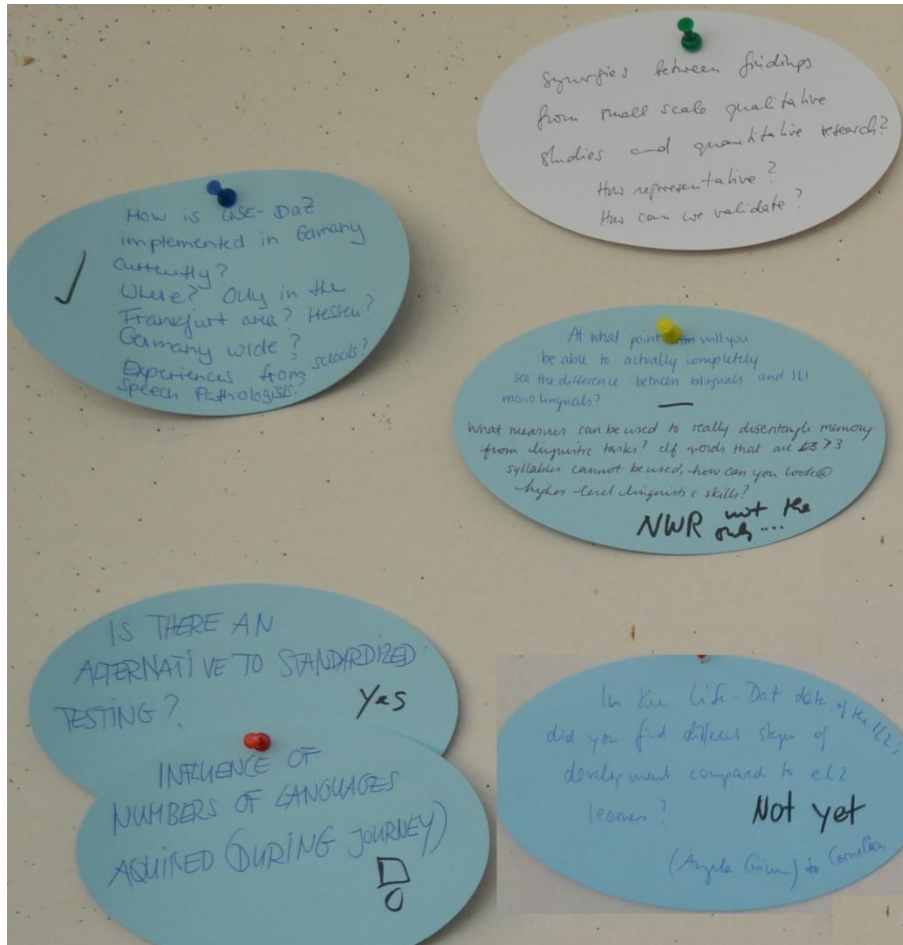 Synergies between findings
from small scale qualitative
studies and quantitative research?
How representative?
How can we validate?
How is LiSE-DaZ
implemented in Germany
currently?
Where? Only in the
Frankfurt area? Hessen?
Germany wide?
Experiences from schools?
Speech Pathologists.
At what point will you
be able to actually completely
see the difference between bilinguals and SLI
monolinguals?
What measures can be used to really disentangle memory
from linguistic tasks? If words that are >3
syllables cannot be used, how can you look@
higher-level linguistic skills?
NWR not the
only....
IS THERE AN
ALTERNATIVE TO STANDARDIZED
TESTING?
Yes
INFLUENCE OF
NUMBERS OF LANGUAGES
AQUIRED (DURING JOURNEY)
In the LiSe-DaZ data, of the
did you find different steps of
development compared to eL2
learner?
Not yet
(Angela Grimm) to Cornelia